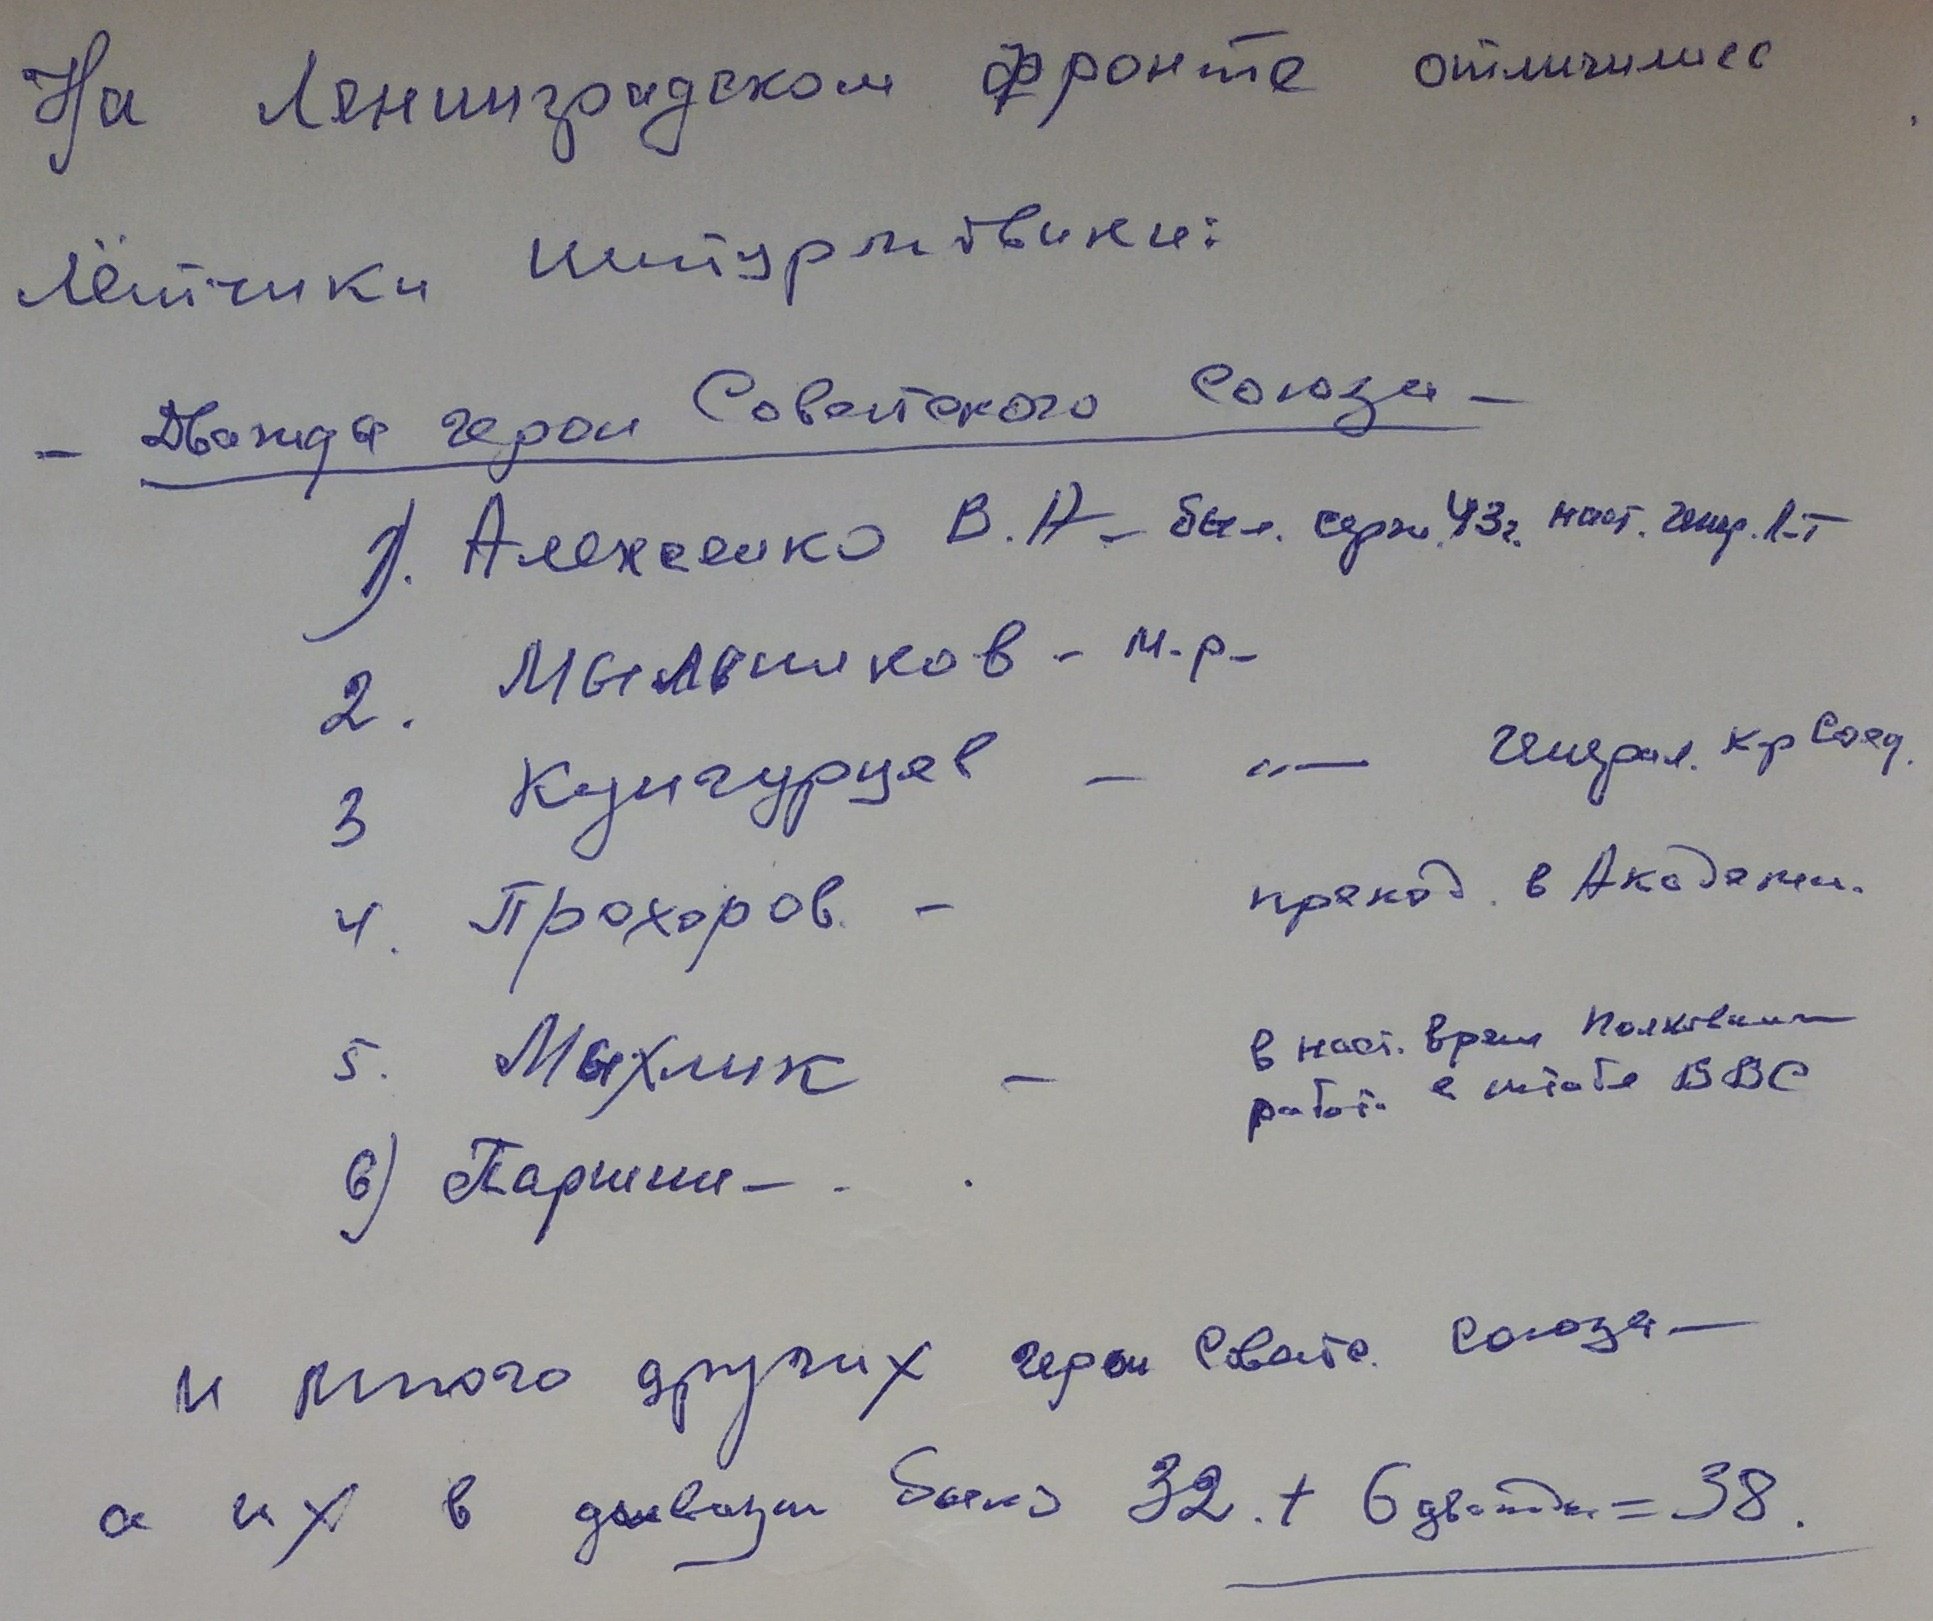 На Ленинградском фронте отличились
лётчики штурмовики:
- Дважды герои Советского Союза -
1). Алексеенко В. А - был. серж. 43г. наст. генер. л-т
2. Мыльников - м-р -
3 Кунгурцев - "— генерал. кр Соед.
4. Прохоров - препод. в Академи.
5. Мыхлик - в наст. время полковник
работ. в штабе ВВС
6) Паршин - .
и много других герои Советс. Союза -
а их в дивизи было 32. + 6 дважды = 38.